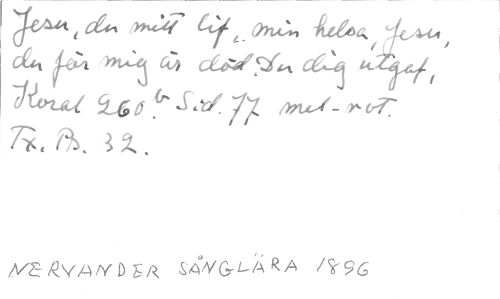 Jesu, du mitt lif, min helsa, Jesu,
du för mig är död. Du dig utgaf,
Koral 260.b Sid. 77 mel-not.
Tx. Ps. 32.
NERVANDER SÅNGLÄRA 1896